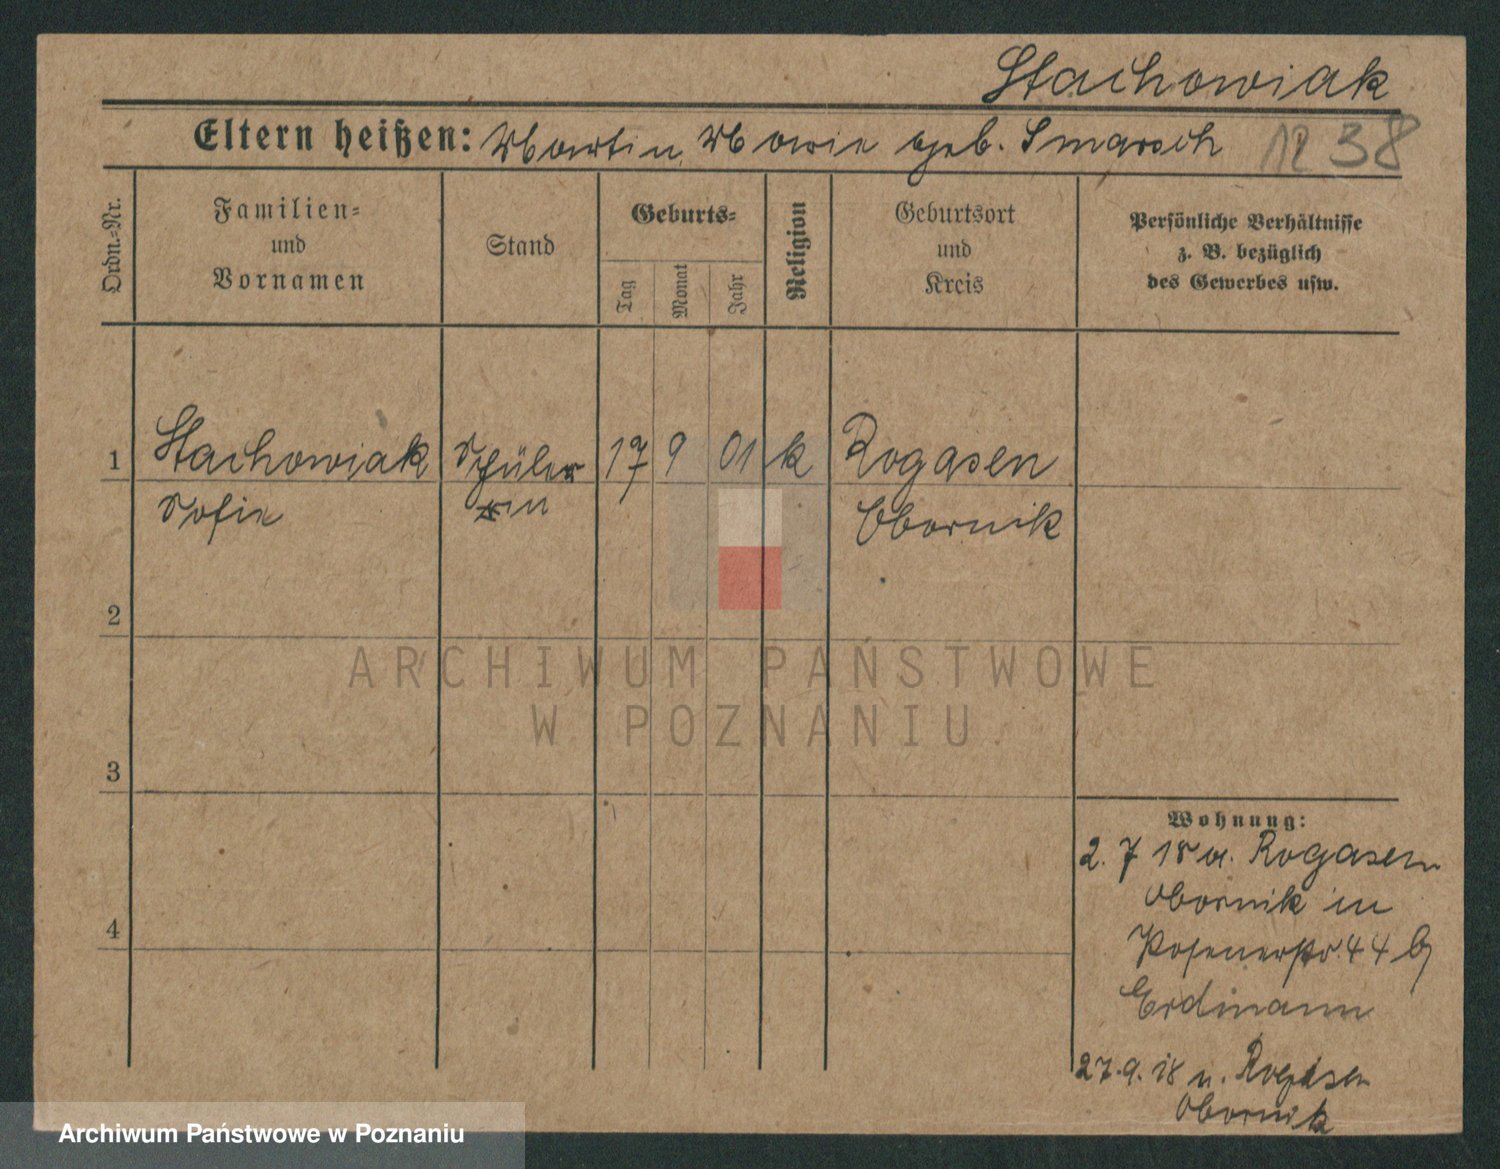 Stachowiak
Eltern heißen: Martin, Marie geb. Smarsch 1238
Ordn.-Nr.
Familien-
und
Vornamen
Stand
Geburts-
Tag
Monat
Jahr
Religion
Geburtsort
und
Kreis
Persönliche Verhältnisse
z. B. bezüglich
des Gewerbes usw.
1 Stachowiak Schüler 17 9 01 k Rogasen
Sofie in Obornik
2
ARCHIWUM PAŃSTWOWE
W POZNANIU
3
Wohnung:
2. 7 18 v. Rogasen
Obornik in
4
Posenerstr. 44 b/
Erdmann
27.9.18 n. Rogasen
Obornik
Archiwum Państwowe w Poznaniu